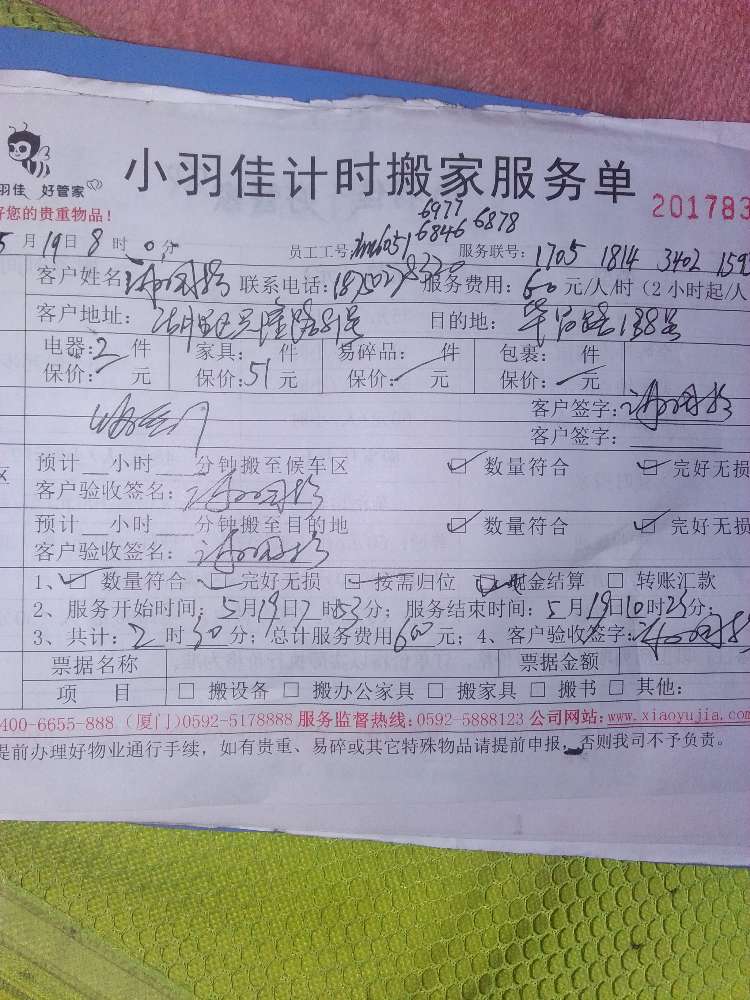 小羽佳计时搬家服务单
羽佳 好管家
好您的贵重物品！
201783
6977
6846 6878
5月19日8时0分 员工工号: 6051 服务联号: 1705 1814 3402 159
客户姓名: 联系电话: 服务费用: 60元/人/时（2小时起/人
客户地址: 目的地: 路138号
电器: 2 件 家具: 件 易碎品: 件 包裹: 件
保价: 元 保价: 51 元 保价: 元 保价: 元
客户签字:
客户签字:
预计__小时___分钟搬至候车区 ☑ 数量符合 ☑ 完好无损
区
客户验收签名:
预计__小时___分钟搬至目的地 ☑ 数量符合 ☑ 完好无损
客户验收签名:
1、☑ 数量符合 ☑ 完好无损 ☑ 按需归位 ☑ 现金结算 □ 转账汇款
2、服务开始时间: 5月19日7时53分; 服务结束时间: 5月19日10时23分;
3、共计: 2时30分; 总计服务费用600元; 4、客户验收签字:
票据名称 票据金额
项 目 □ 搬设备 □ 搬办公家具 □ 搬家具 □ 搬书 □ 其他:
400-6655-888（厦门）0592-5178888 服务监督热线:0592-5888123 公司网站:www.xiaoyujia.com
提前办理好物业通行手续，如有贵重、易碎或其它特殊物品请提前申报，否则我司不予负责。